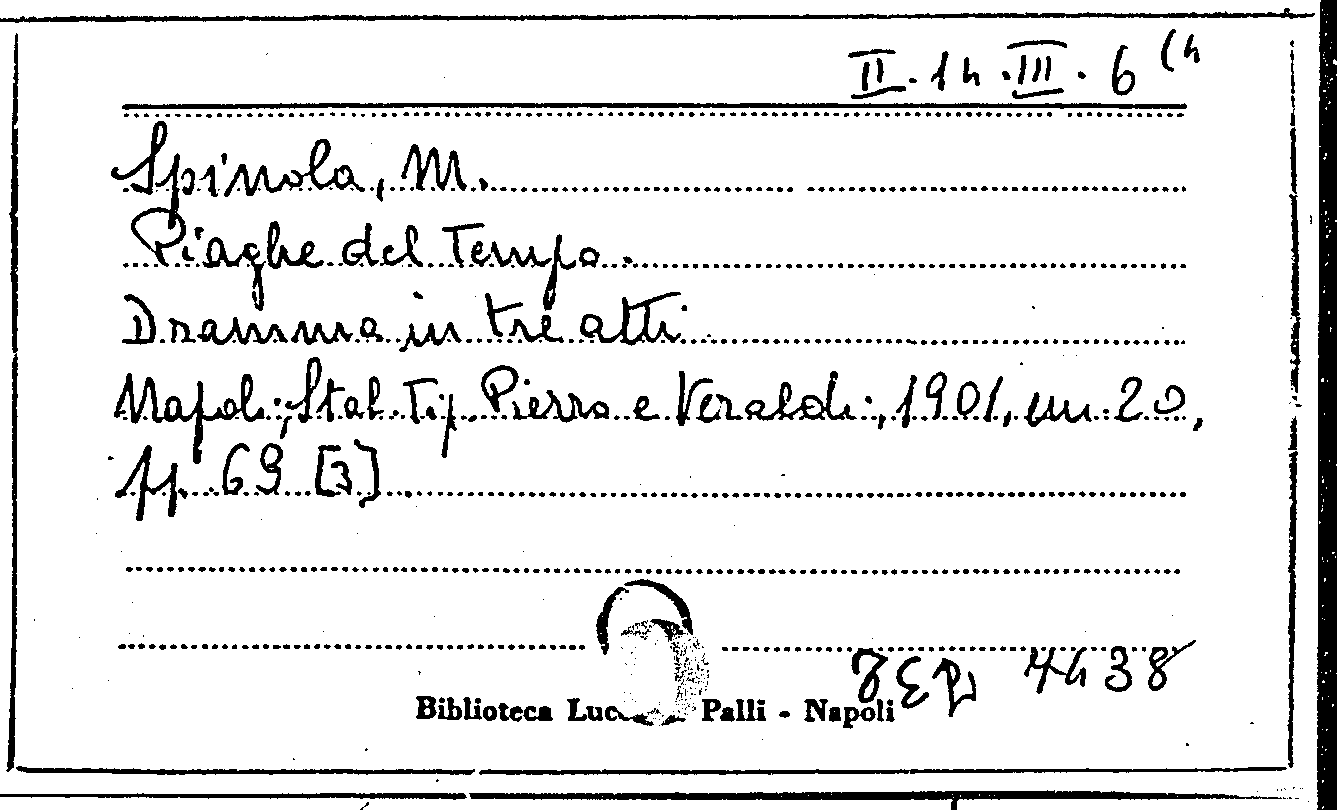 II. 14. III. 6 (4
Spinola, M.
Piaghe del Tempo.
Dramma in tre atti
Napoli, Stab. Tip. Pierro e Veraldi, 1901, in 20,
pp. 69 [3]
4438
Biblioteca Palli - Napoli